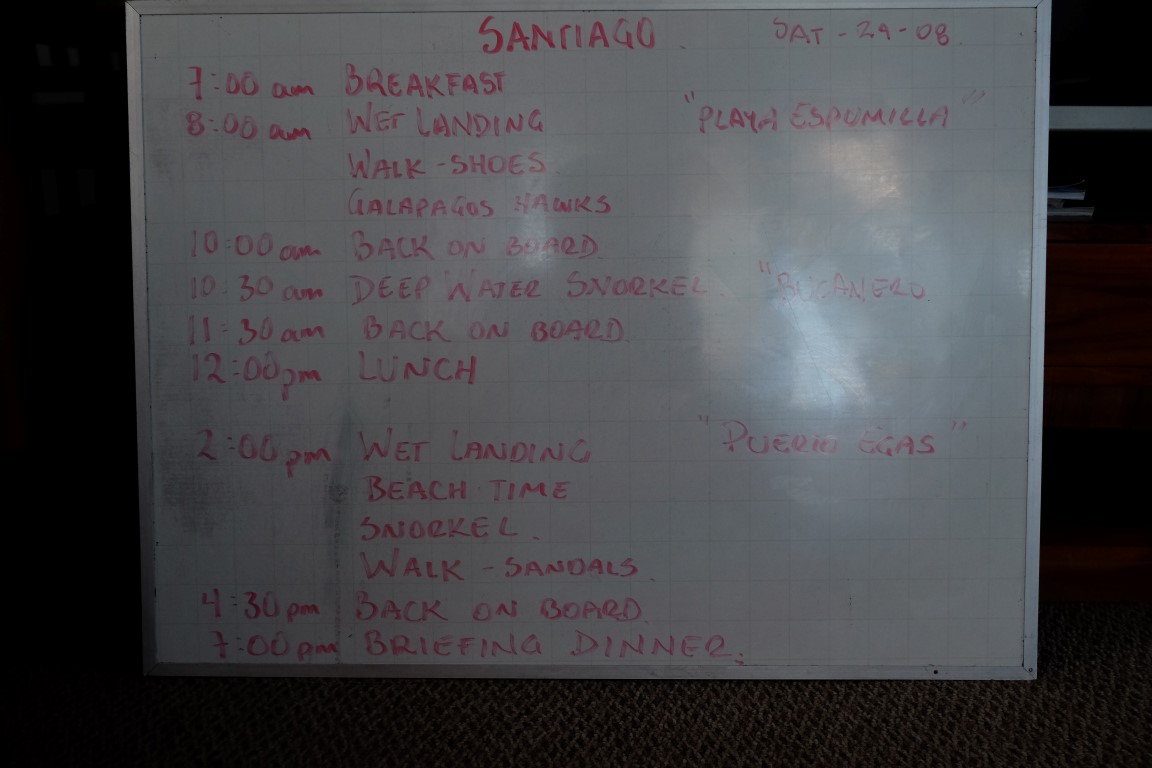 SANTIAGO. SAT - 29-08
7:00 am BREAKFAST
8:00 am WET LANDING "PLAYA ESPUMILLA"
WALK - SHOES
GALAPAGOS HAWKS
10:00 am BACK ON BOARD.
10:30 am DEEP WATER SNORKEL "BUCANERO.
11:30 am BACK ON BOARD.
12:00pm LUNCH
2:00 pm WET LANDING "PUERTO EGAS"
BEACH TIME
SNORKEL.
WALK - SANDALS.
4:30pm BACK ON BOARD.
7:00pm BRIEFING DINNER.